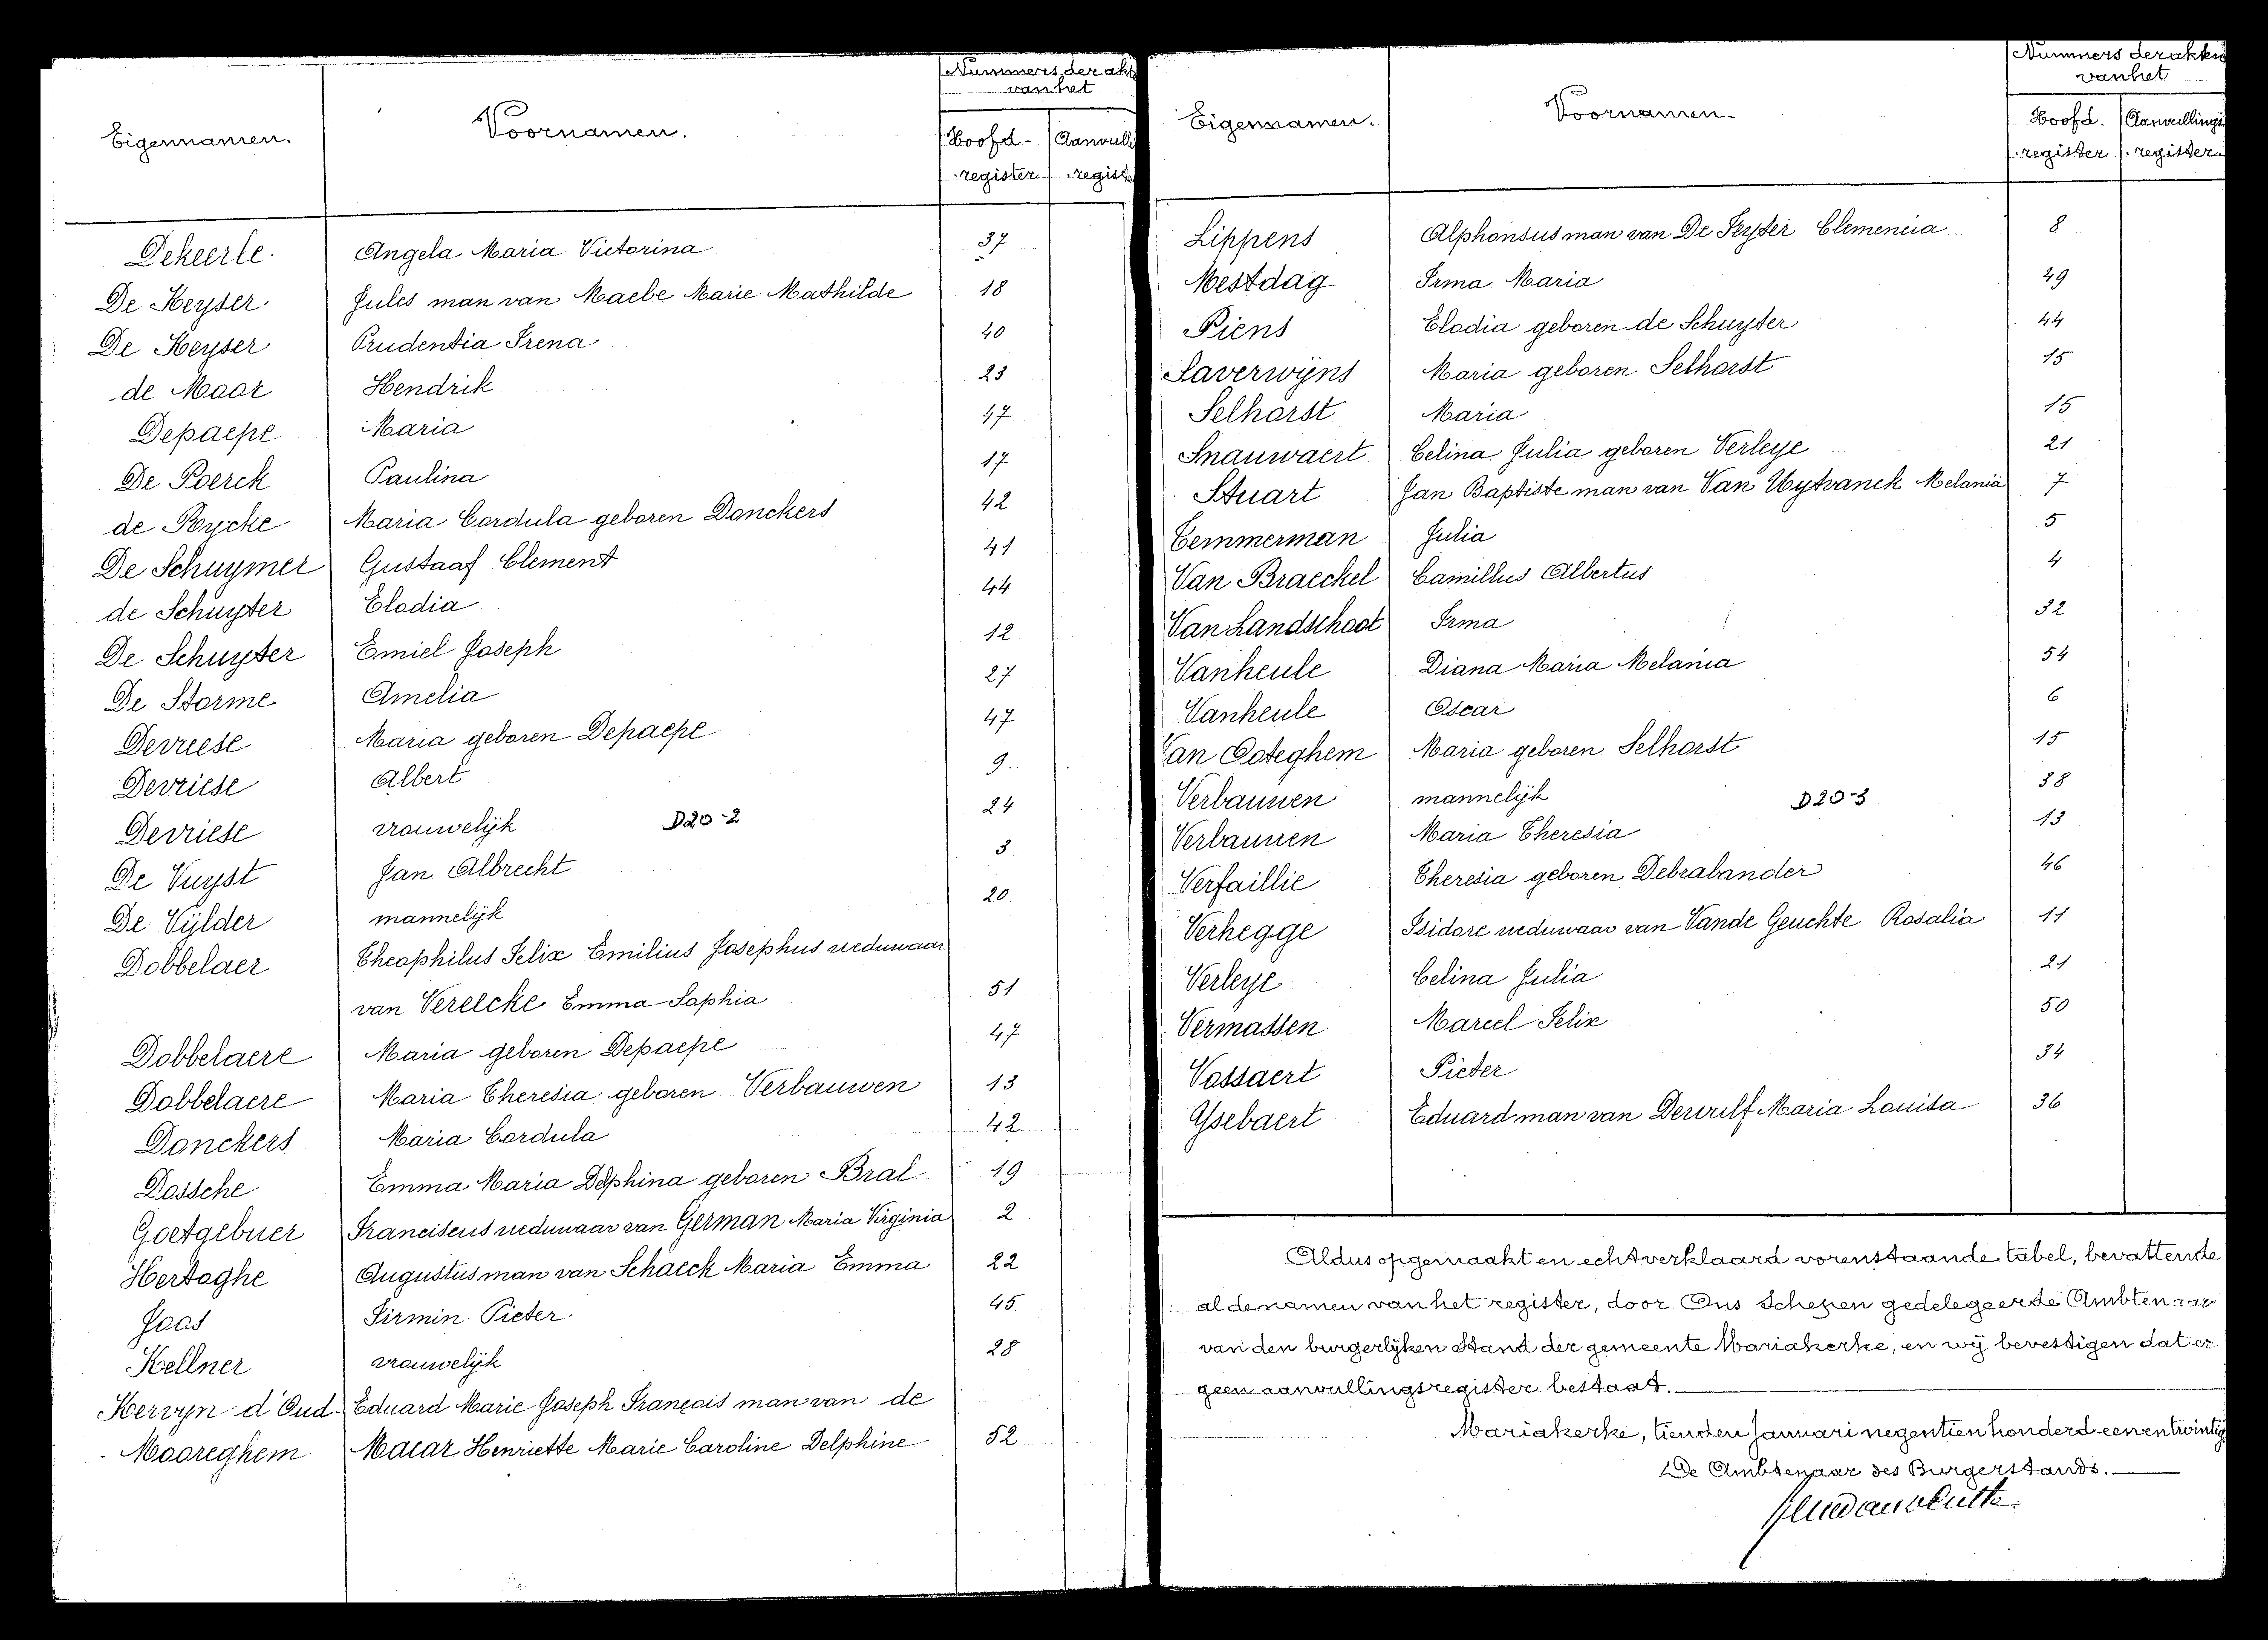 Nummers der akt
van het
Eigennamen. Voornamen. Hoofd- Aanvull
register register
Dekeerle Angela Maria Victorina 37
De Keyser Jules man van Maebe Marie Mathilde 18
De Keyser Prudentia Irena 40
de Maar Hendrik 23
Depaepe Maria 47
De Poerck Paulina 17
de Rycke Maria Cordula geboren Donckers 42
De Schuymer Gustaaf Clement 41
de Schuyter Elodia 44
De Schuyter Emiel Joseph 12
De Storme Amelia 27
Devreese Maria geboren Depaepe 47
Devriese Albert 9
Devriese vrouwelijk D20-2 24
De Vuyst Jan Albrecht 3
De Vijlder mannelijk 20
Dobbelaer Theophilus Felix Emilius Josephus weduwaar
van Verelcke Emma Sophia 51
Dobbelaere Maria geboren Depaepe 47
Dobbelaere Maria Theresia geboren Verbauwen 13
Donckers Maria Cordula 42
Dossche Emma Maria Delphina geboren Bral 19
Goetgebuer Franciscus weduwaar van German Maria Virginia 2
Hertoghe Augustus man van Schaeck Maria Emma 22
Jaas Firmin Pieter 45
Kellner vrouwelijk 28
Kervyn d'Oud- Eduard Marie Joseph François man van de
Mooreghem Macar Henriette Marie Caroline Delphine 52
Nummers der akten
van het
Eigennamen. Voornamen. Hoofd. Aanvullings
register register
Lippens Alphonsus man van De Feyter Clemencia 8
Mestdag Irma Maria 49
Piens Elodia geboren de Schuyter 44
Saverwijns Maria geboren Selhorst 15
Selhorst Maria 15
Snauwaert Celina Julia geboren Verleye 21
Stuart Jan Baptiste man van Van Uytvanck Melania 7
Temmerman Julia 5
Van Braeckel Camillus Albertus 4
Van Landschoot Irma 32
Vanheule Diana Maria Melania 54
Vanheule Oscar 6
Van Ooteghem Maria geboren Selhorst 15
Verbauwen mannelijk D20-3 38
Verbauwen Maria Theresia 13
Verfaillie Theresia geboren Debrabander 46
Verhegge Isidore weduwaar van Vande Geuchte Rosalia 11
Verleye Celina Julia 21
Vermassen Marcel Felix 50
Vossaert Pieter 34
Ysebaert Eduard man van Dewulf Maria Louisa 36
Aldus opgemaakt en echtverklaard vorenstaande tabel, bevattende
al de namen van het register, door Ons Schepen gedelegeerde Ambtenaar
van den burgerlijken Stand der gemeente Mariakerke, en wij bevestigen dat er
geen aanvullingsregister bestaat.
Mariakerke, tienden Januari negentienhonderd eenentwintig
De Ambtenaar des Burgerstands.